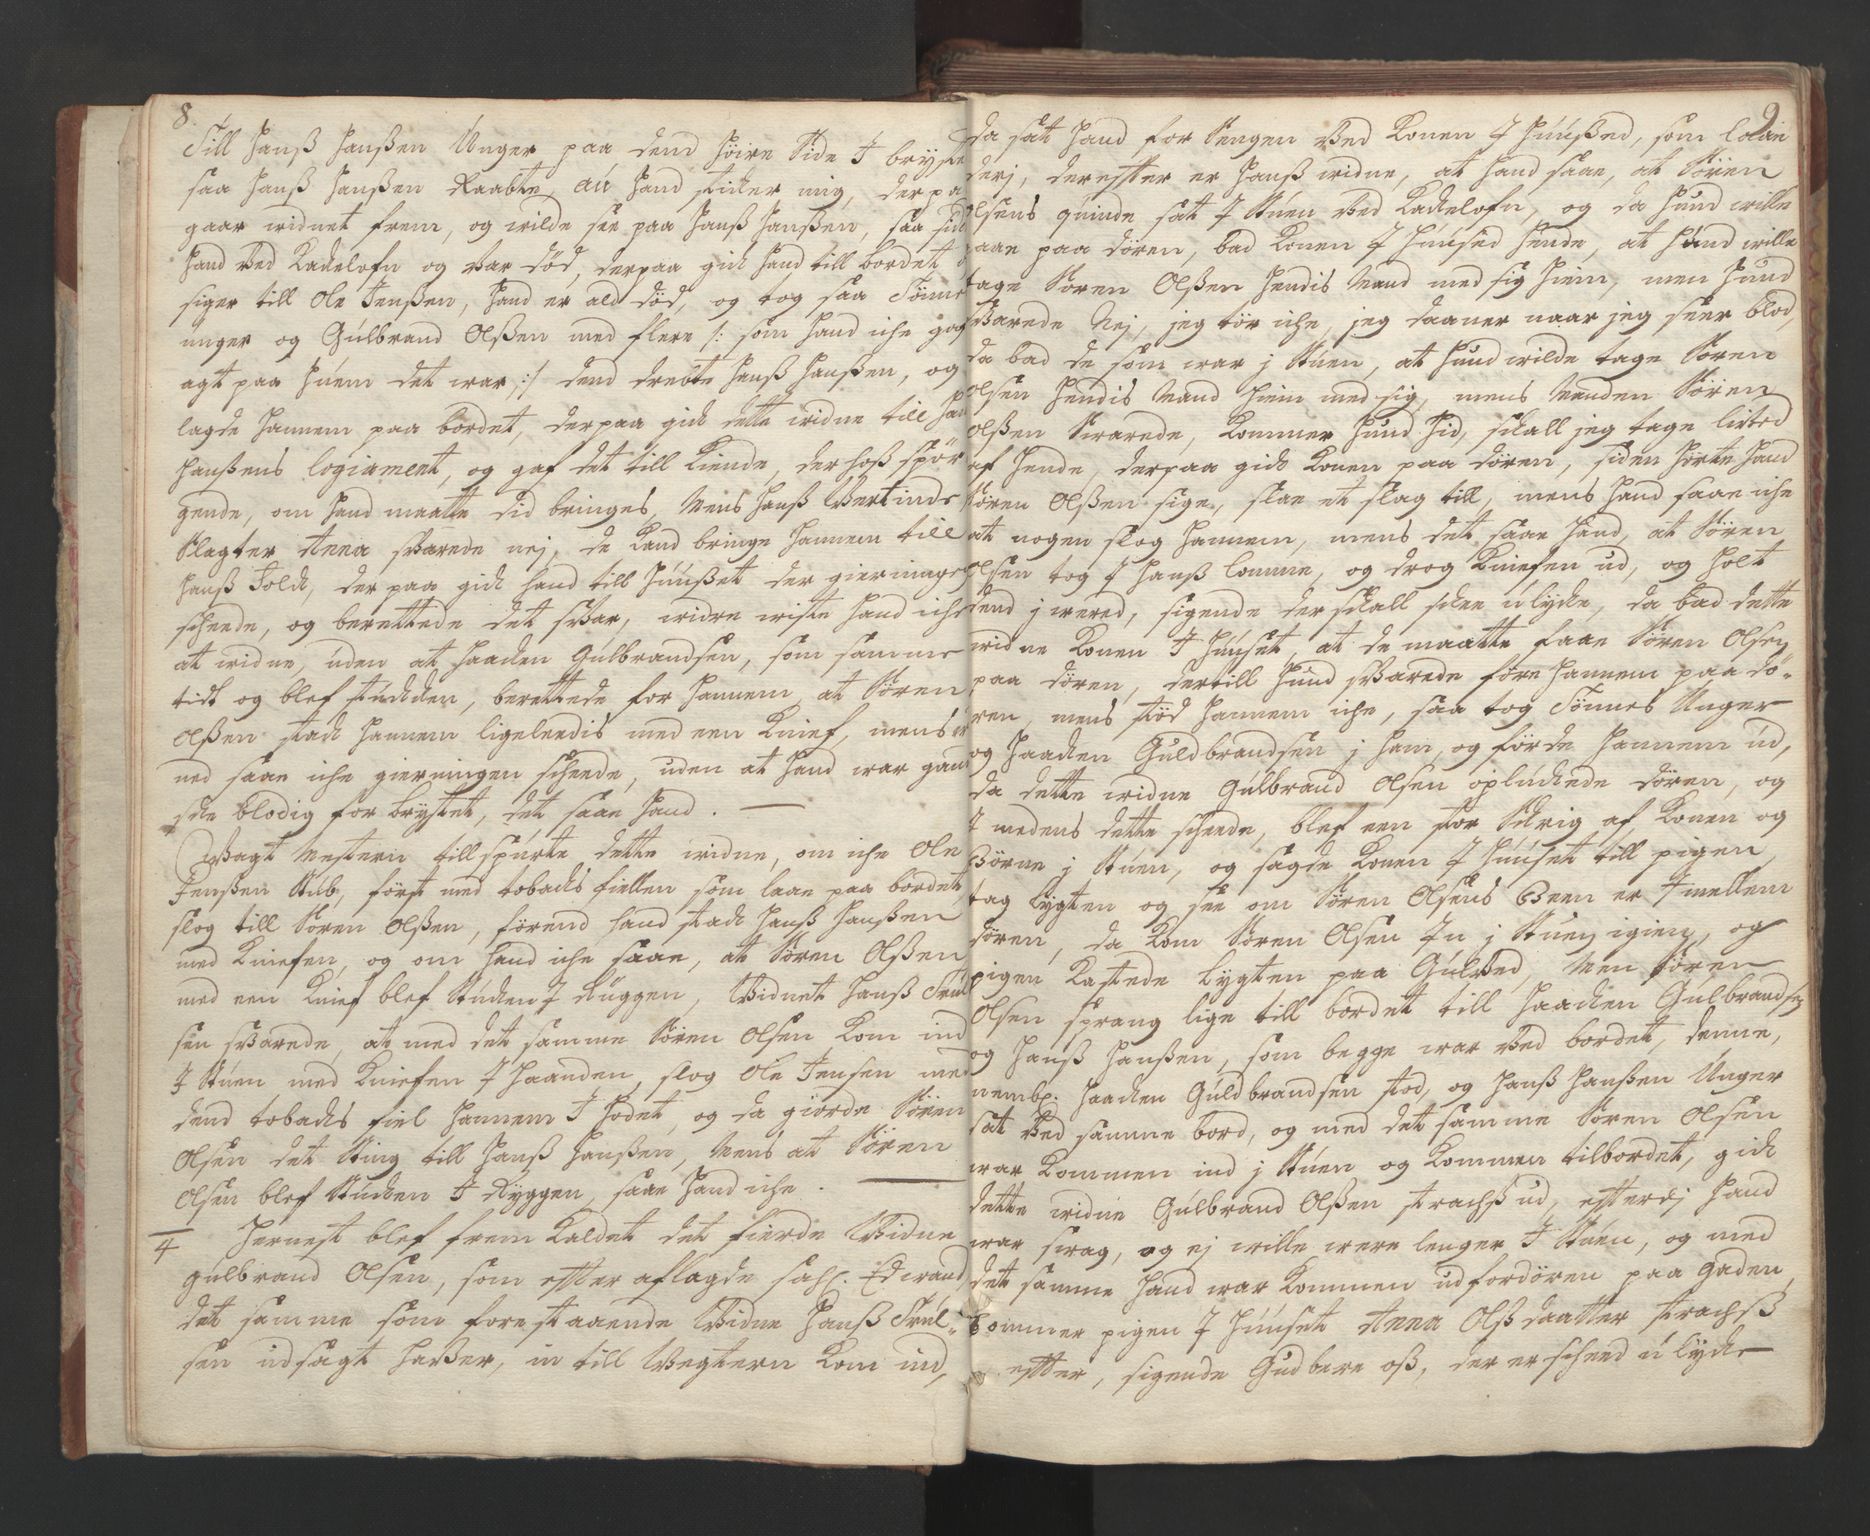 8.
Till Hanß Hanßen Unger paa dend høire Side I bryste
saa Hanß Hanßen Raabte, au hand sticker mig, derpa
gaar widnet frem, og wilde see paa Hanß Hanßen, saa sid
hand ved Kackelofn og var død, derpaa gick hand till bordet
siger till Ole Jenßen, hand er ald død, og tog saa Tønne
unger og Gulbrand Olßen med flere /: som hand iche gaf
agt paa huem det war :/ dend drebte Hanß Hanßen, og
lagde hannem paa bordet, derpaa gick dette widne till Han
Hanßens logiament, og gaf det till Kiende, der hoß spør
gende, om hand maatte did bringes, mens Hanß Vertinde
Slagter Anna svarede nej, de Kand bringe hannem till
hanß Folck, der paa gick hand till Huußet der gierninge
scheede, og berettede det svar, widre wiste hand iche
at widne, uden at Haacken Gulbrandsen, som samme
tidt og blef stucken, berettede for hannem at Søren
Olßen stack hannem ligeleedis med een Knief, mens w
ned saae iche gierningen scheede, uden at hand war gan
ske blodig for brystet, det saae hand.
Wagt Mestern tillspurte dette widne, om iche Ole
Jenßen Stub, først med tobacks fiellen som laae paa bordet
slog till Søren Olßen, førend hand stack Hanß Hanßen
med Kniefen, og om hand iche saae, at Søren Olßen
med een Knief blef Stucken I Ruggen, Widnet Hanß Trul
sen svarede, at med det samme Søren Olsen Kom ind
I Stuen med Kniefen I haanden, slog Ole Jensen me
dend tobacks fiel hannem I hodet, og da giorde Søren
Olsen det Sting till Hanß Hanßen, mens at Søren
Olsen blef Stucken I Ryggen, saae hand iche.
4 Hernest blef frem Kaldet det fierde Widne
gulbrand Olsen, som efter aflagde sahl. Ed wand
det samme som forestaaende Widne Hanß Trul-
sen udsagt hafver, in till Wegtern Kom ind,
9
da sat hand for Sengen ved Konen I Huußed, som laae
derj, derefter er Hanß widne, at hand saae, at Søren
Olsens quinde sat I Stuen ved Kackelofn, og da hund wille
gaae paa døren, bad Konen I Huused hende, at hund wille
tage Søren Olßen hendis Mand med sig hiem, men hund
svarede Nej, jeg tør iche, jeg daaner naar jeg seer blod,
da bad de som war j Stuen, at hund wilde tage Søren
Olsen hendis Mand hiem med sig, mens Manden Søren
Olßen swarede, Kommer hund hid, schall jeg tage lived
af hende, derpaa gick Konen paa døren, siden hørte hand
Søren Olßen sige, slaa et slag till, mens hand saae iche
at nogen slog hannem, mens det saae hand, at Søren
Olsen tog I Hanß lomme, og drog Kniefen ud, og holt
dend j wered, sigende der schall schee ulycke, da bad dette
widne Konen I Huuset, at de maatte faae Søren Olsen
paa døren, dertill hund svarede føre hannem paa dø-
ren, mens stød hannem iche, saa tog Tønnes Unger
og Haacken Guldbrandsen j ham, og førde hannem ud,
da dette widne Gulbrand Olsen opluckede døren, og
I medens dette scheede, blef een stor Schrig af Konen og
Børne j Stuen, og sagde Konen I Huuset till pigen,
tag lygten og see om Søren Olsens Been er I mellem
døren, da Kom Søren Olsen In j Stuen igien, og
pigen Kastede lygten paa Gulved, Men Søren
Olsen sprang lige till bordet till Haacken Gulbrandsen
og Hanß Hanßen, som begge war ved bordet, denne,
nembl. Haacken Guldbrandsen stod, og Hanß Hanßen Unger
sat ved samme bord, og med det samme Søren Olsen
war Kommen ind j Stuen og Kommen tilbordet, gick
dette widne Gulbrand Olßen strachs ud, efterdj hand
war swag, og ej wille were lenger I Stuen, og med
det samme hand war Kommen udfordøren paa gaden,
Kommer pigen I Huuset Anna Olßdaatter strachß
efter, sigende Gud bere oß, der er scheed ulycke